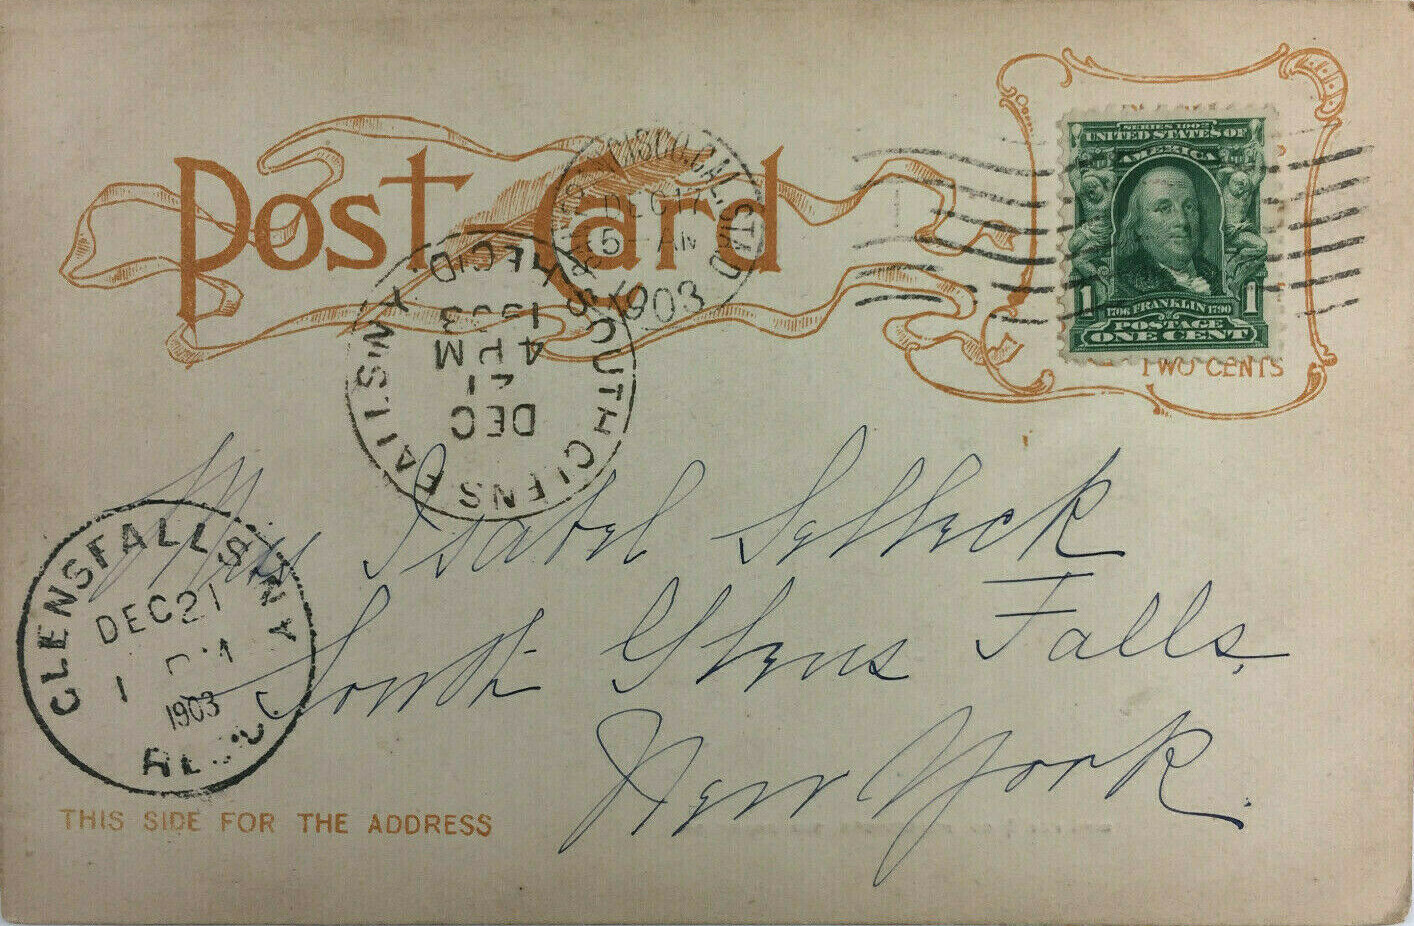 Post Card
SERIES 1902
UNITED STATES OF
AMERICA
1 1706 FRANKLIN 1790 1
POSTAGE
ONE CENT
TWO CENTS
CISCO, CAL. STA. D
DEC 17
5-AM
1903
SOUTH GLENS FALLS N.Y.
DEC
21
4 PM
1903
REC'D.
Miss Isabel Selleck
South Glens Falls,
New York.
GLENSFALLS N.Y.
DEC 21
1 PM
1903
REC'D.
THIS SIDE FOR THE ADDRESS